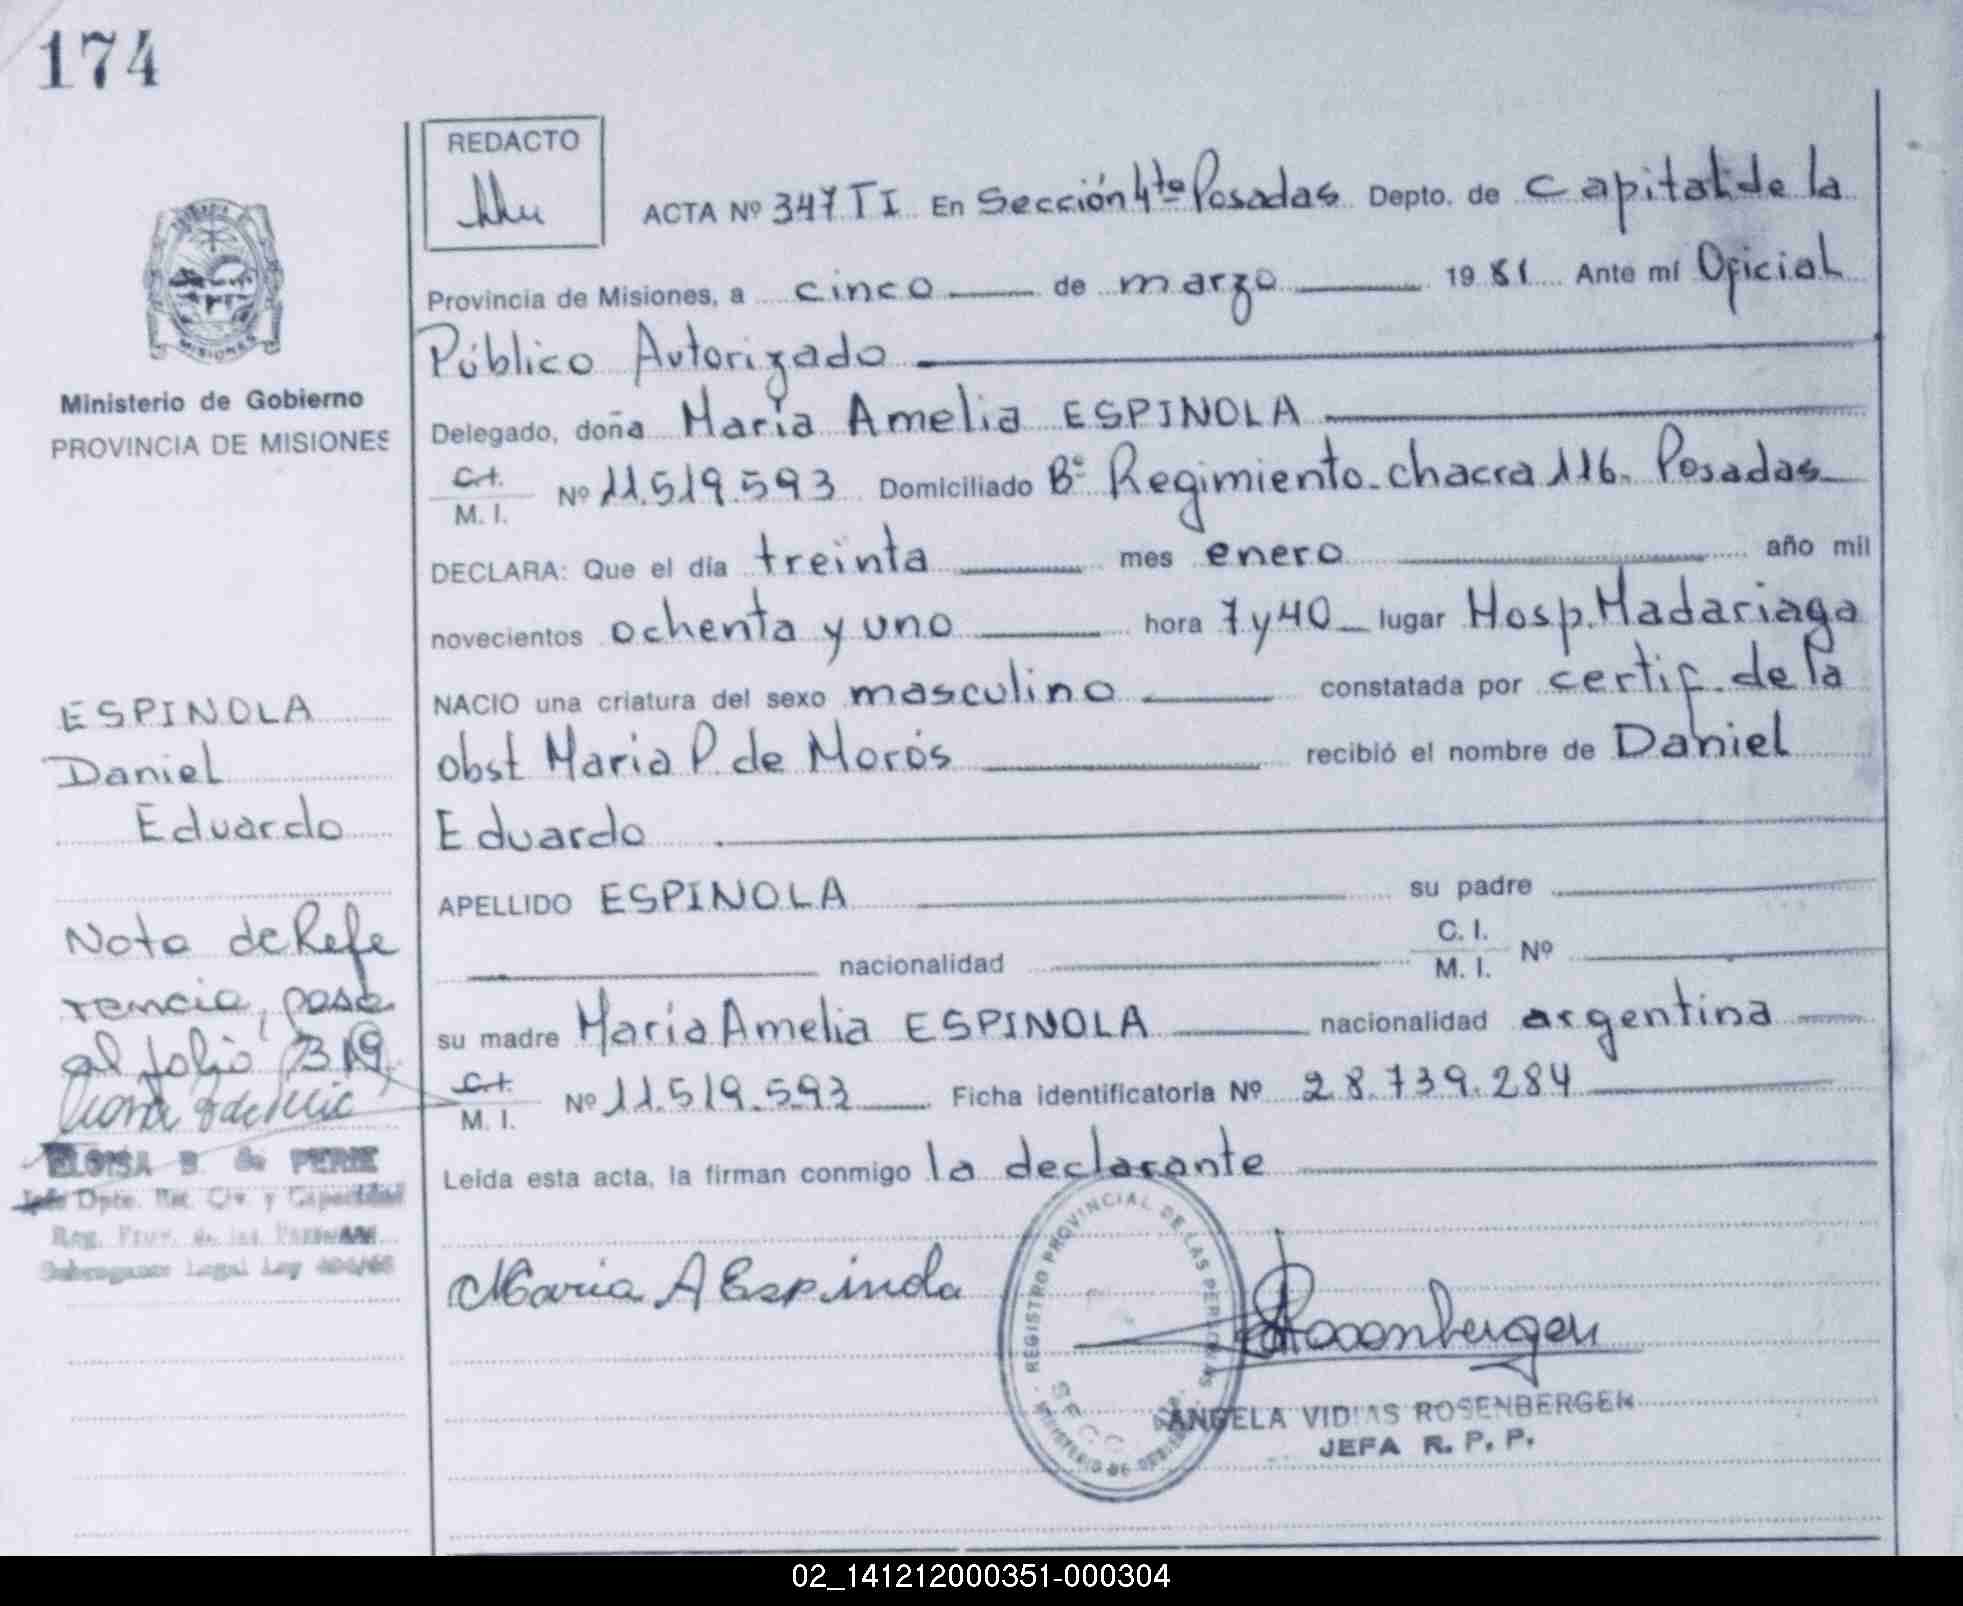 174
REDACTO
ACTA Nº 347 TI En Sección 4ta Posadas Depto. de Capital de la
Provincia de Misiones, a cinco de marzo 1981 Ante mí Oficial
Público Autorizado
Delegado, doña María Amelia ESPINOLA
C.I.
M. I. Nº 11.519.593 Domiciliado Bº Regimiento chacra 116. Posadas
DECLARA: Que el día treinta mes enero año mil
novecientos ochenta y uno hora 7 y 40 lugar Hosp. Madariaga
NACIO una criatura del sexo masculino constatada por certif. de la
obst Maria P. de Morós recibió el nombre de Daniel
Eduardo
APELLIDO ESPINOLA su padre
nacionalidad C. I.
M. I. Nº
su madre María Amelia ESPINOLA nacionalidad argentina
C.I.
M. I. Nº 11.519.593 Ficha identificatoria Nº 28.739.284
Leída esta acta, la firman conmigo la declarante
Maria A Espinola
Rosenberger
ANGELA VIDIAS ROSENBERGER
JEFA R. P. P.
REGISTRO PROVINCIAL DE LAS PERSONAS
SECC
MINISTERIO DE GOBIERNO
MISIONES
Ministerio de Gobierno
PROVINCIA DE MISIONES
ESPINOLA
Daniel
Eduardo
Nota de Refe
rencia, pasa
al folio 319
ELOISA B. de PERIE
Jefe Dpto. Est. Civ. y Capacidad
Reg. Prov. de las Personas
Subrogante Legal Ley
02_141212000351-000304